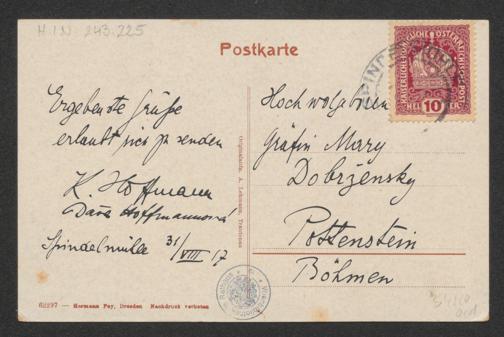 H.I.N. 243.225
Postkarte
KAISERLICHE KÖNIGLICHE ÖSTERREICHISCHE POST
HELLER 10
Ergebenste Grüße
erlaubt sich zu senden
K. Hoffmann
Spindelmühle 31/VIII 17
Hochwolgeboren
Gräfin Mary
Dobrženský
Pottenstein
Böhmen
Originalaufn. A. Lehmann, Trautenau
62297 — Hermann Poy, Dresden Nachdruck verboten